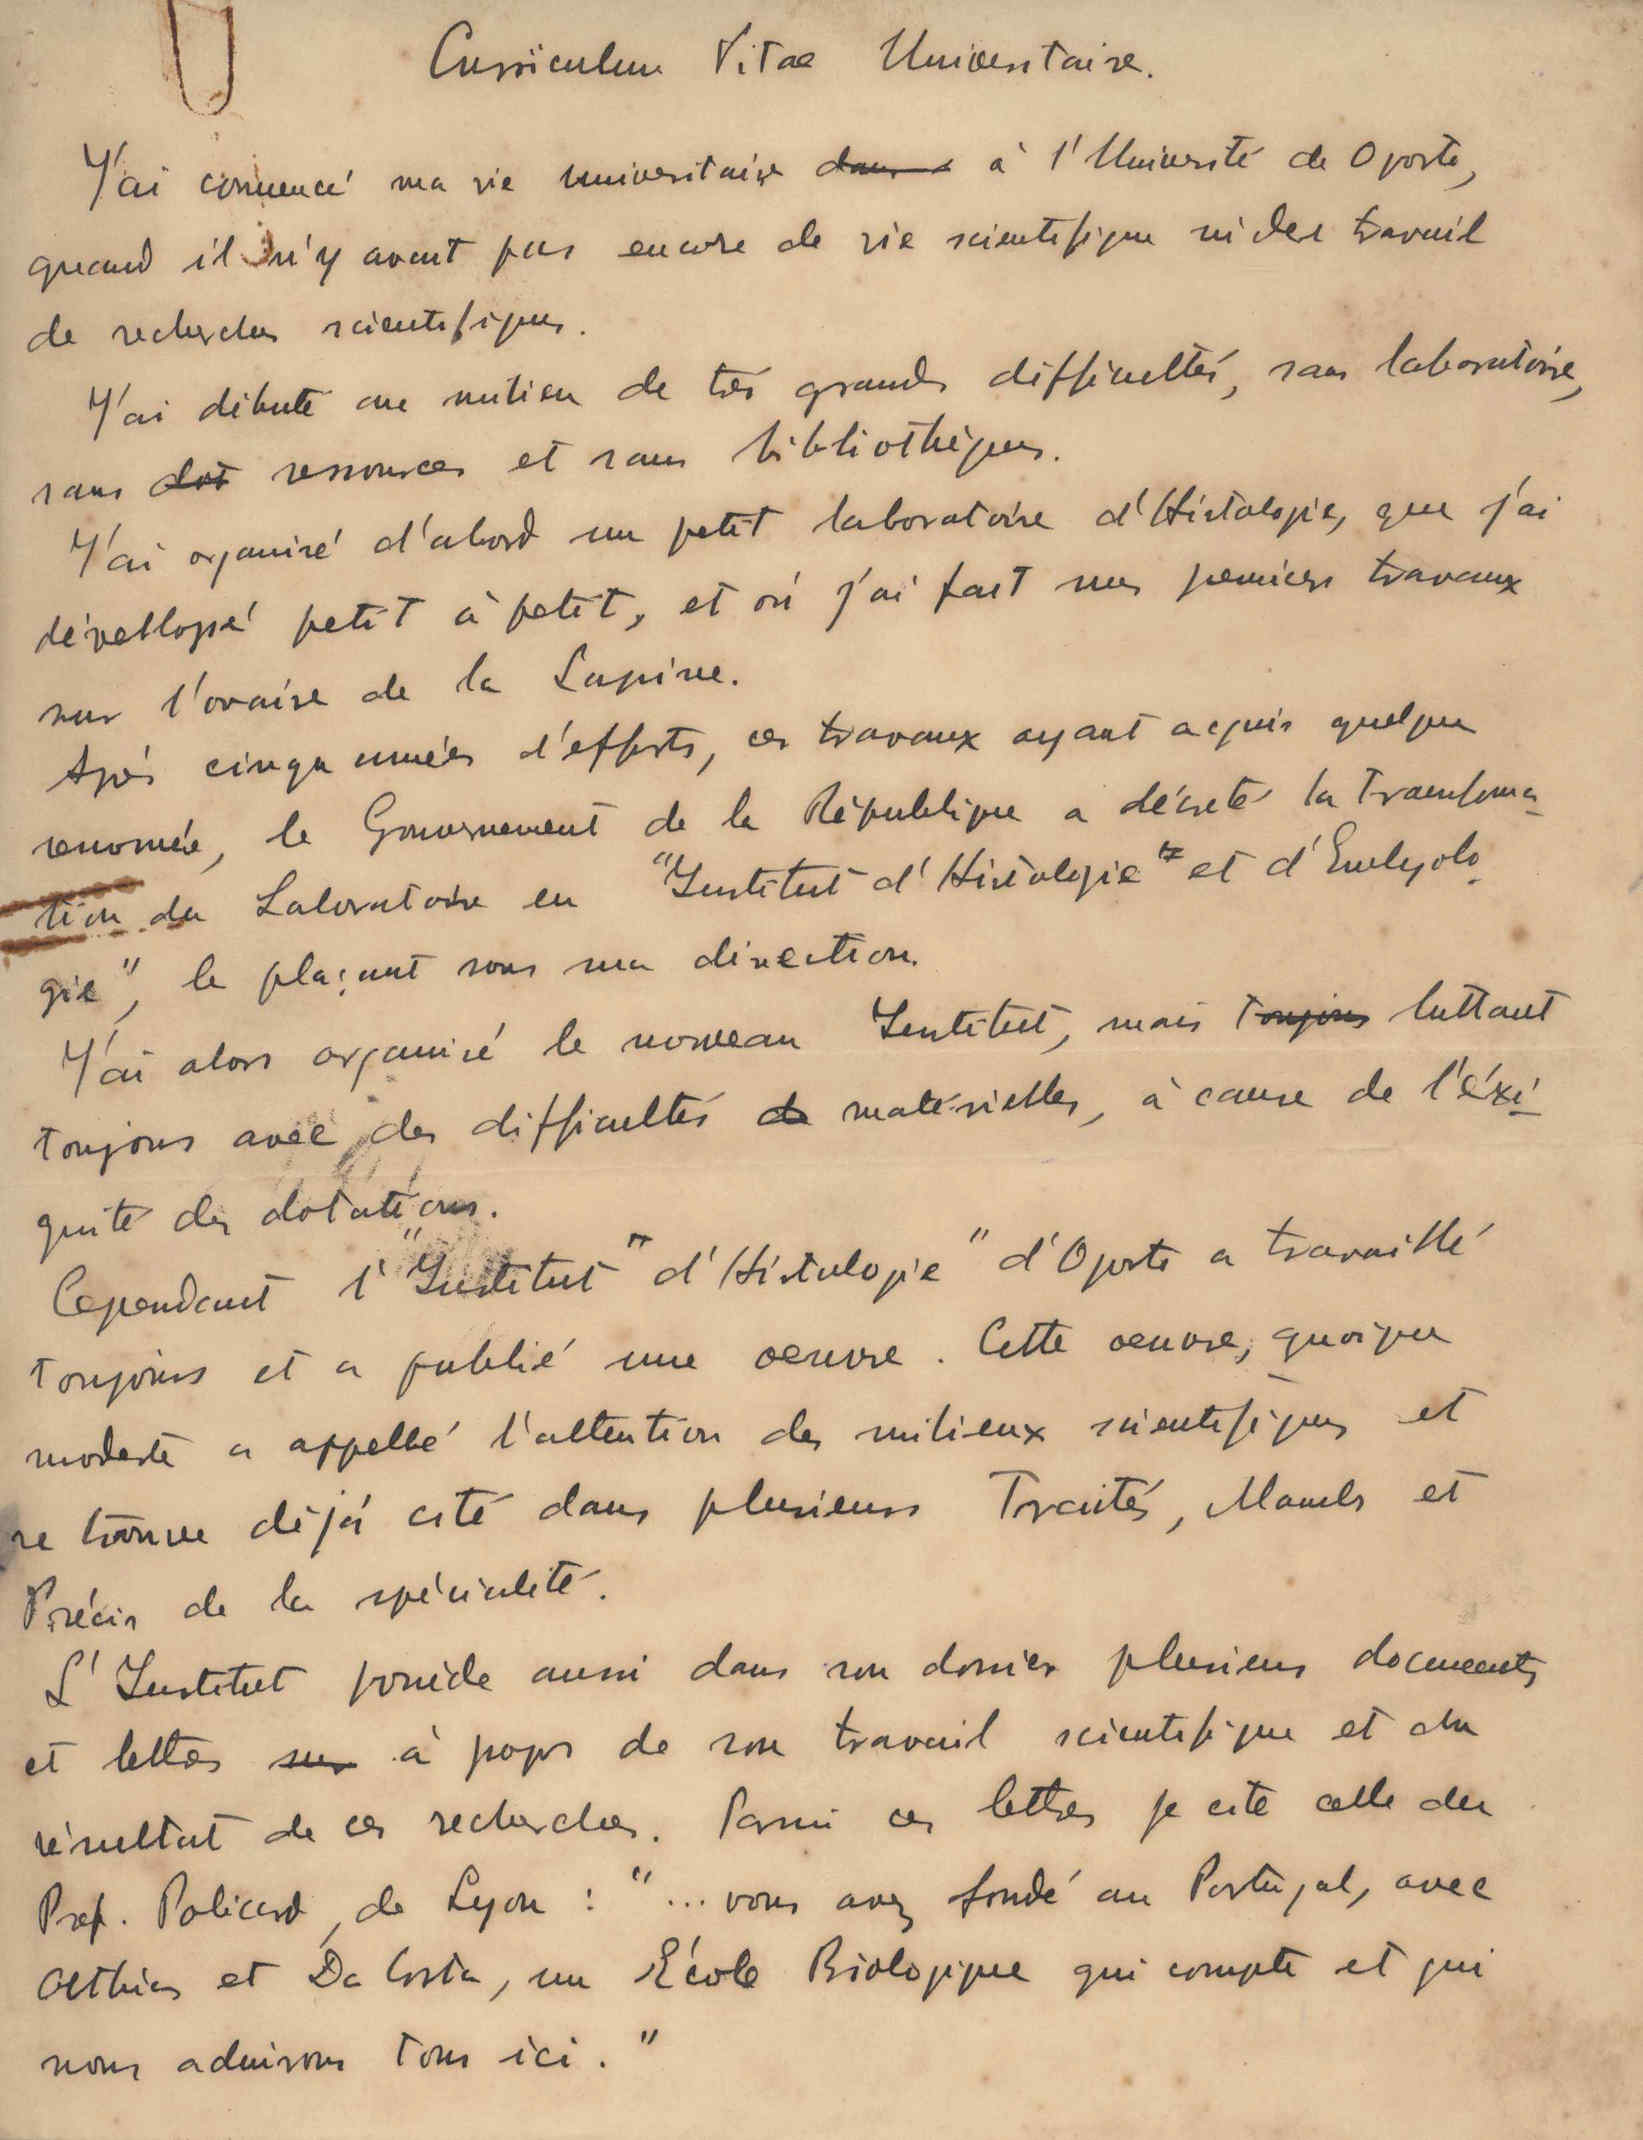 Curriculum Vitae Universitaire.
J'ai commencé ma vie universitaire dans à l'Université de Oporto,
quand il n'y avait pas encore de vie scientifique ni des travail
de recherches scientifiques.
J'ai débuté au milieu de très grands difficultés, sans laboratoire,
sans dot ressources et sans bibliothèques.
J'ai organisé d'abord un petit laboratoire d'Histologie, que j'ai
dévellopé petit à petit, et où j'ai fait mes premiers travaux
sur l'ovaire de la Lapine.
Après cinqu années d'efforts, ces travaux ayant acquis quelque
renomée, le Gouvernement de la République a décreté la transforma-
tion du Laboratoire en "Institut d'Histologie" et d'Embryolo-
gie", le plaçant sous ma direction.
J'ai alors organisé le nouveau Institut, mais toujours luttant
toujours avec des difficultés de matérielles, à cause de l'éxi-
guité des dotations.
Cependant l'"Institut" d'Histologie" d'Oporto a travaillé
toujours et a publié une oeuvre. Cette oeuvre, quoique
modeste a appellé l'attention des milieux scientifiques et
se trouve déjá cité dans plusieurs Traités, Manuels et
Précis de la spécialité.
L'Institut possède aussi dans son dossier plusieurs documents
et lettres sur à propos de son travail scientifique et du
résultat de ces recherches. Parmi ces lettres je cite celle du
Prof. Policard, de Lyon : "... vous avez fondé au Portugal, avec
Athias et Da Costa, un École Biologique qui compte et qui
nous admirons tous ici."